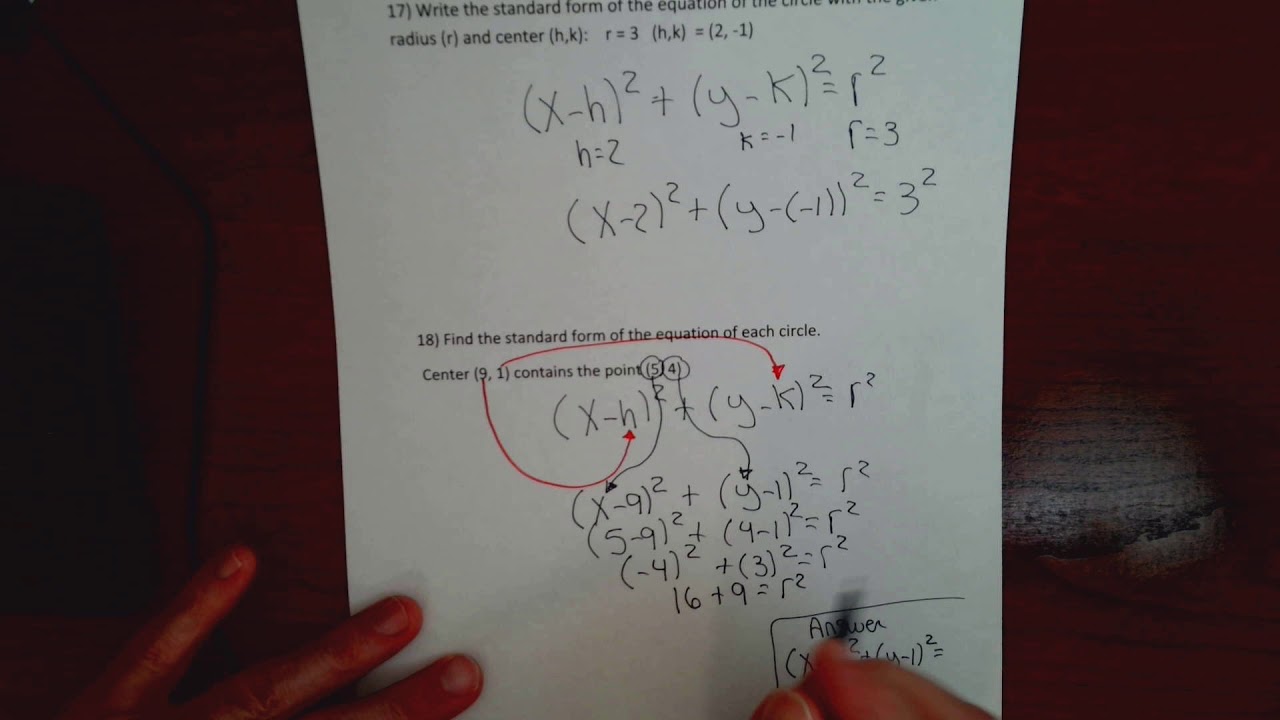 17) Write the standard form of the equation of the circle with the given
radius (r) and center (h,k): r = 3 (h,k) = (2, -1)
(x-h)² + (y-k)² = r²
h=2 k=-1 r=3
(x-2)² + (y-(-1))² = 3²
18) Find the standard form of the equation of each circle.
Center (9, 1) contains the point (5, 4)
(x-h)² + (y-k)² = r²
(x-9)² + (y-1)² = r²
(5-9)² + (4-1)² = r²
(-4)² + (3)² = r²
16 + 9 = r²
Answer
(x ² + (y-1)² =